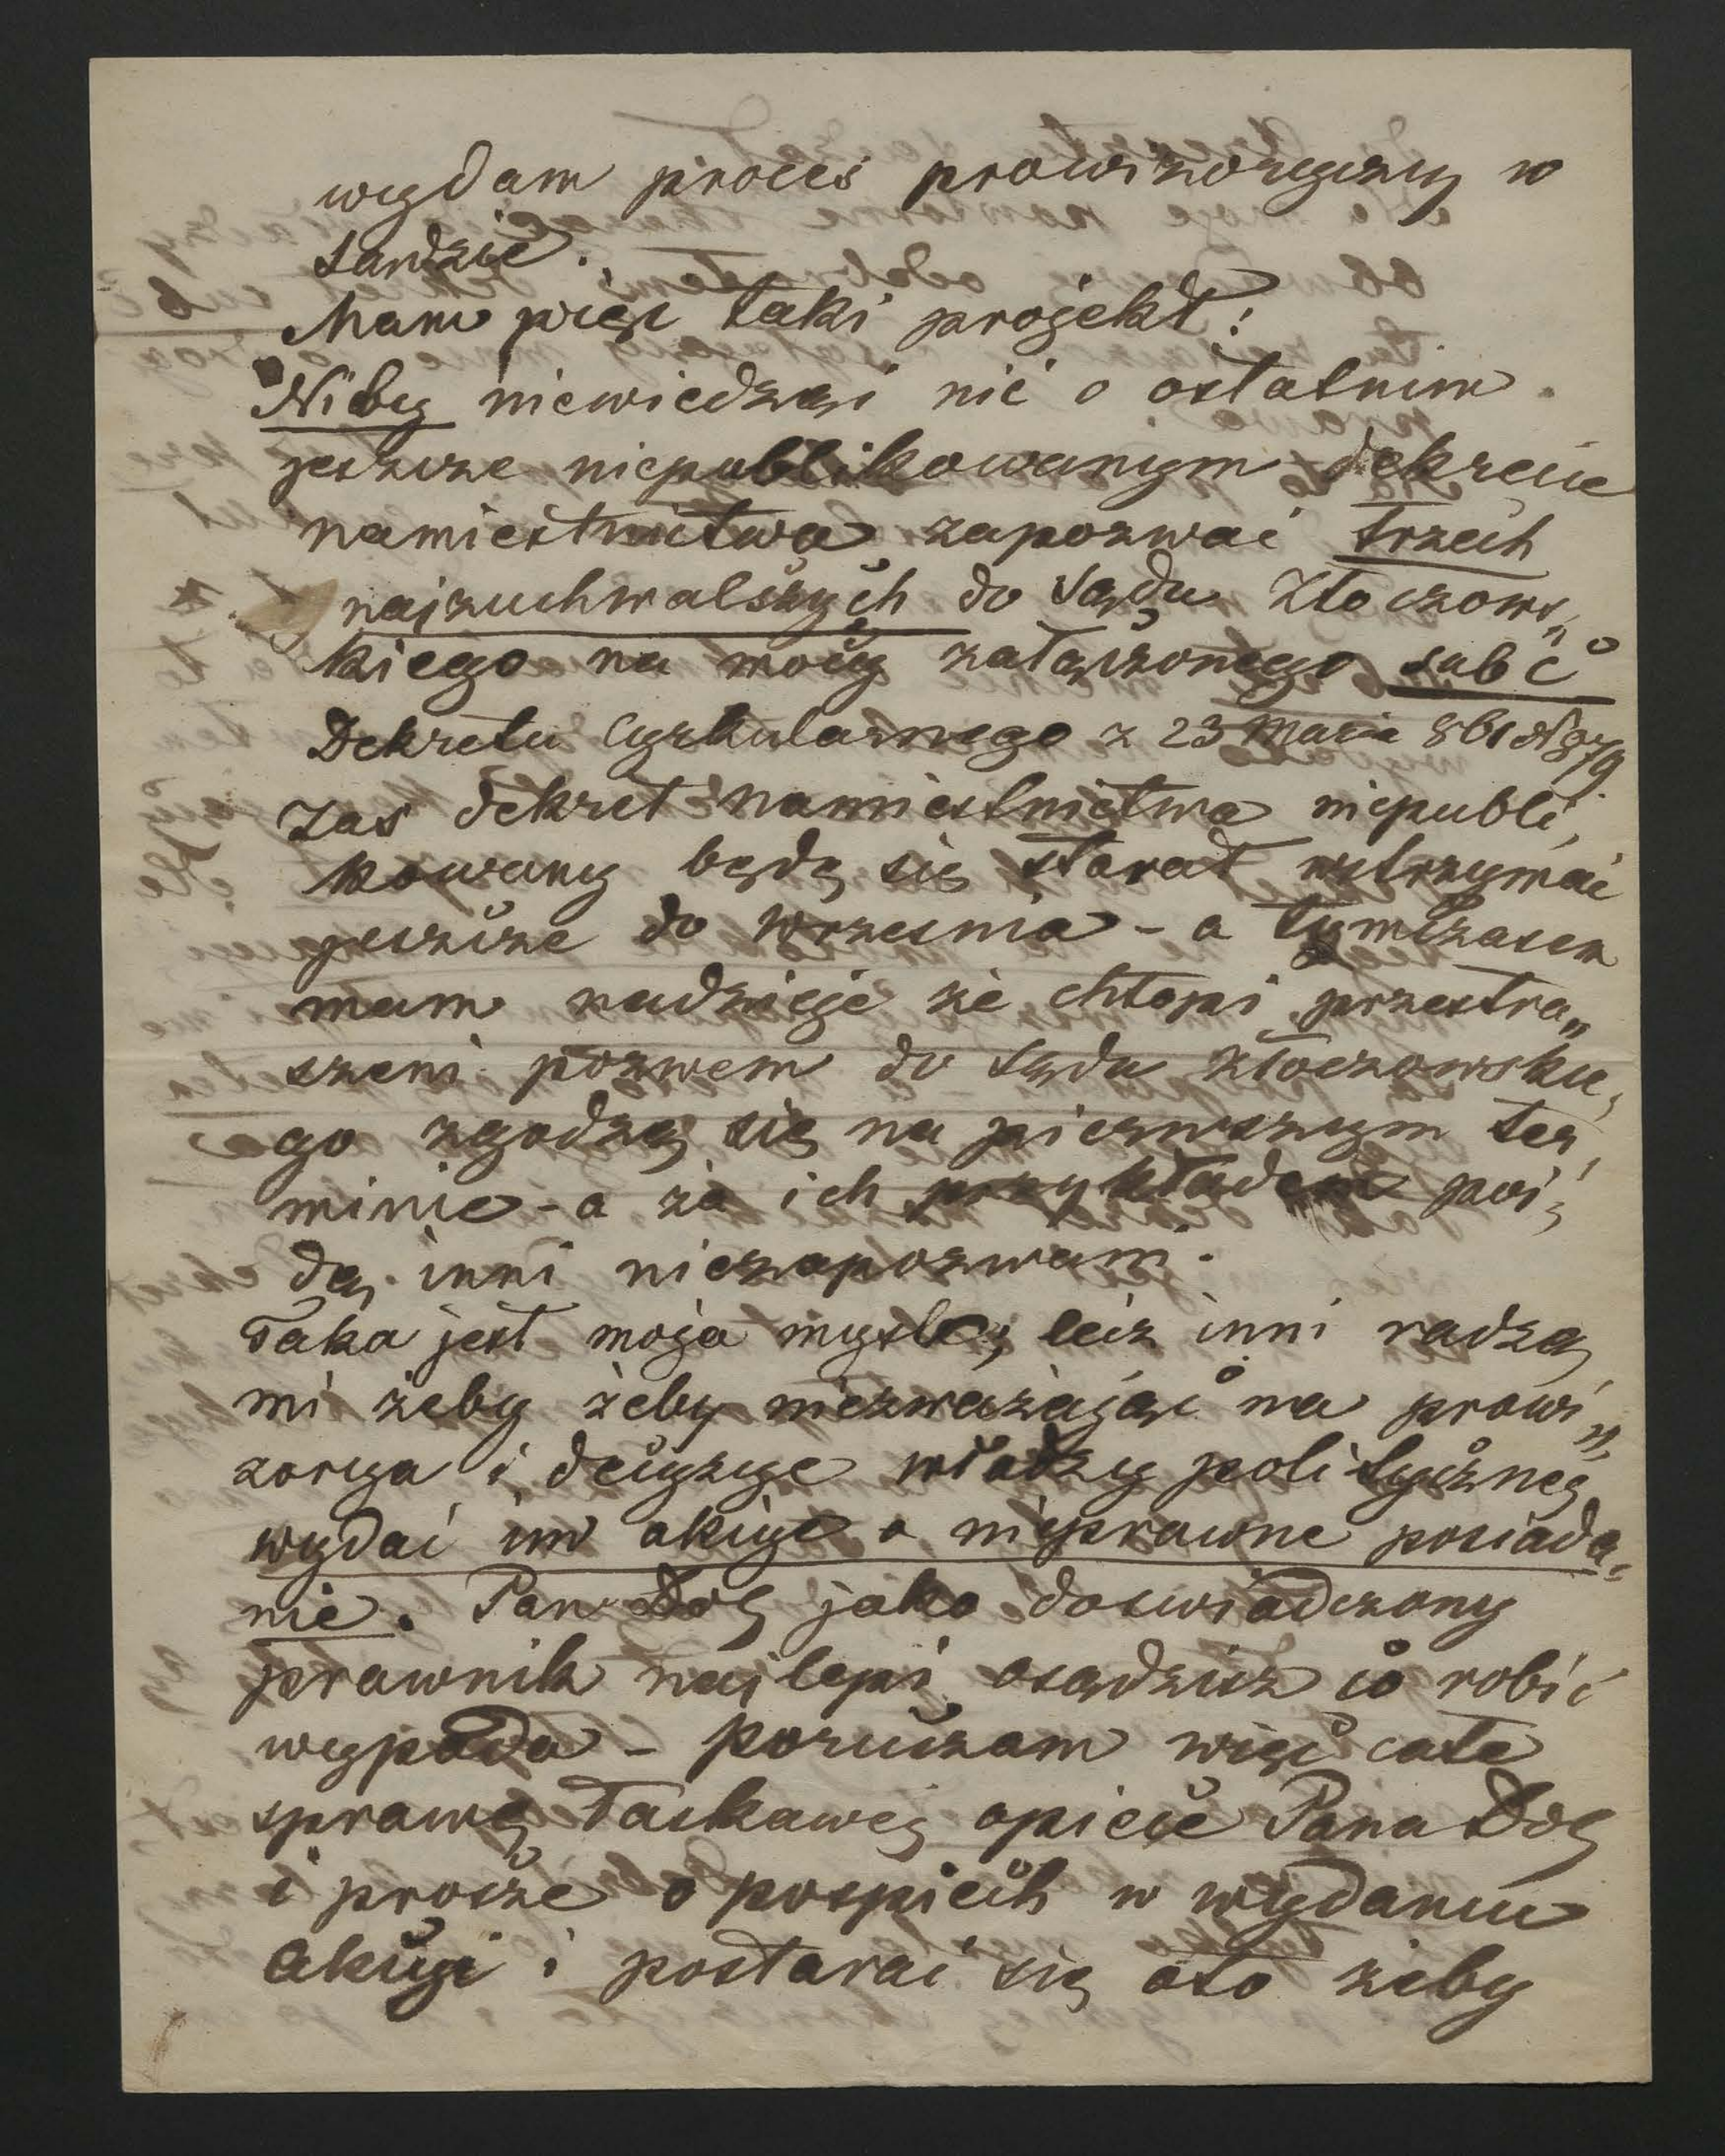 wydam proces prowizoryczny w
sandzie.
Mam więc taki projekt:
Niby niewiedząc nic o ostatnim
jeszcze niepublikowanym dekrecie
namiestnictwa zapozwać trzech
najzuchwalszych do Sądu Złoczows„
kiego na mocy załączonego sub C
Dekretu Cyrkularnego z 23 Maja 861 N 879.
Zas dekret namiestnictwa niepubli,
kowany będę się starał wstrzymać
jeszcze do wrzesnia - a tymczasem
mam nadzieje że chłopi przestra„
szeni pozwem do Sądu złoczowskie,
go zgodzą się na pierwszym ter,
minie - a za ich przykładem pói,
dą inni niezapozwani.
Taka jest moja mysl; lecz inni radzą
mi żeby żeby niezważając na prowi„
zorya i decyzye władzy politycznej
wydać im akcye o nieprawne posiada„
nie. Pan Dob jako doswiadczony
prawnik najlepi osądzisz co robić
wypada - poruczam więc całe
sprawę łaskawej opiece Pana Dob
i prosze o pospiech w wydaniu
akcyi i postarać się oto żeby